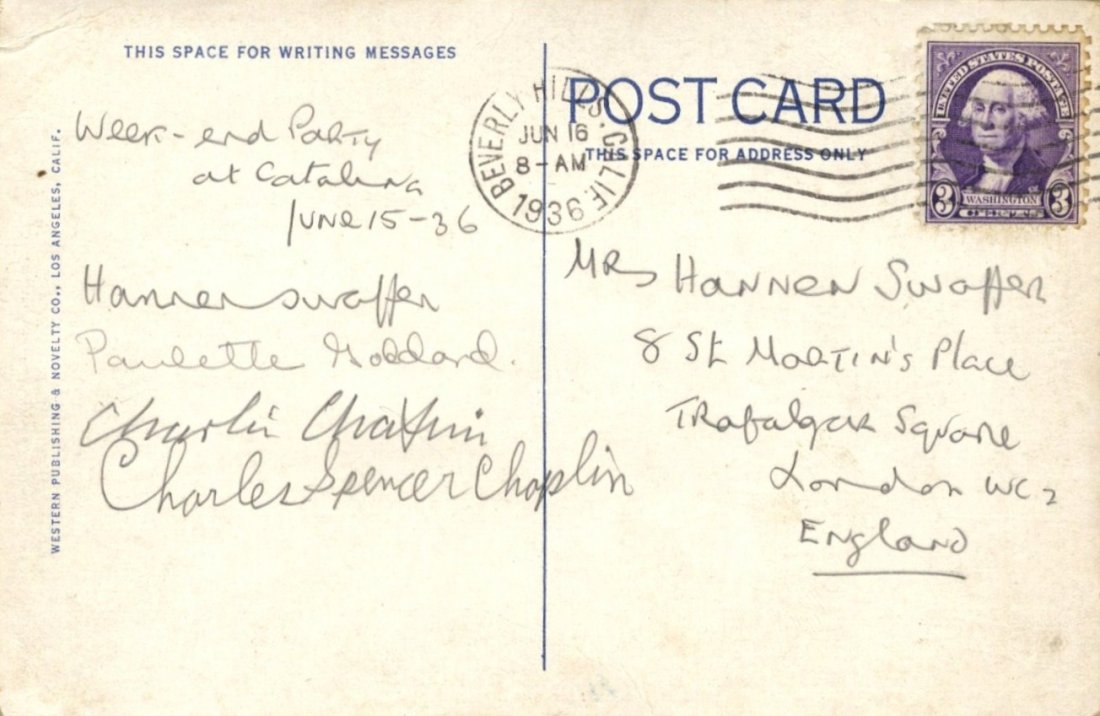 THIS SPACE FOR WRITING MESSAGES
Week-end Party
at Catalina
June 15-36
Hannen Swaffer
Paulette Goddard.
Charlie Chaplin
Charles Spencer Chaplin
WESTERN PUBLISHING & NOVELTY CO., LOS ANGELES, CALIF.
POST CARD
THIS SPACE FOR ADDRESS ONLY
BEVERLY HILLS. CALIF.
JUN 16
8-AM
1936
UNITED STATES POSTAGE
3 WASHINGTON 3
CENTS
Mrs Hannen Swaffer
8 St Martin's Place
Trafalgar Square
London WC2
England